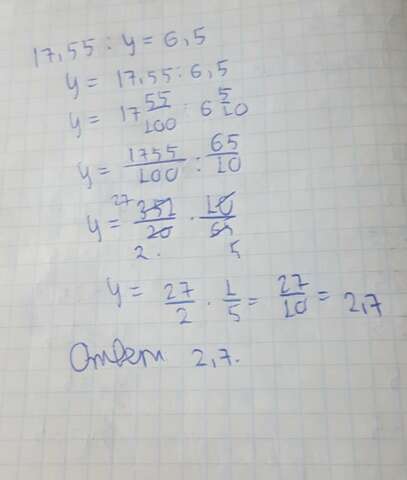 17,55 : y = 6,5
y = 17,55 : 6,5
y = 17 55/100 : 6 5/10
y = 1755/100 : 65/10
y = 27 351/20 · 10/65
2. 5
y = 27/2 · 1/5 = 27/10 = 2,7
Ответ 2,7.